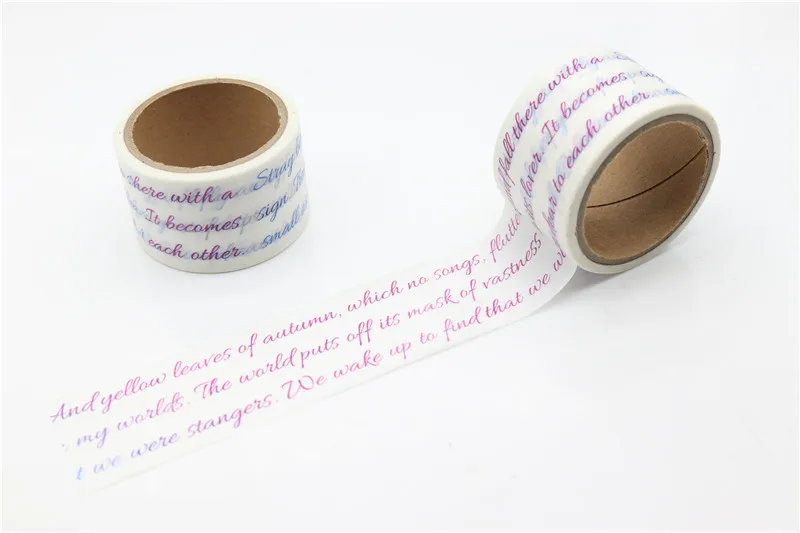 there with a Strug
It becomes sign.
each other. a small
fall there with a
lover. It becomes
to each other.
And yellow leaves of autumn, which no songs,
my worlds. The world puts off its mask of vastness
t we were stangers. We wake up to find that we